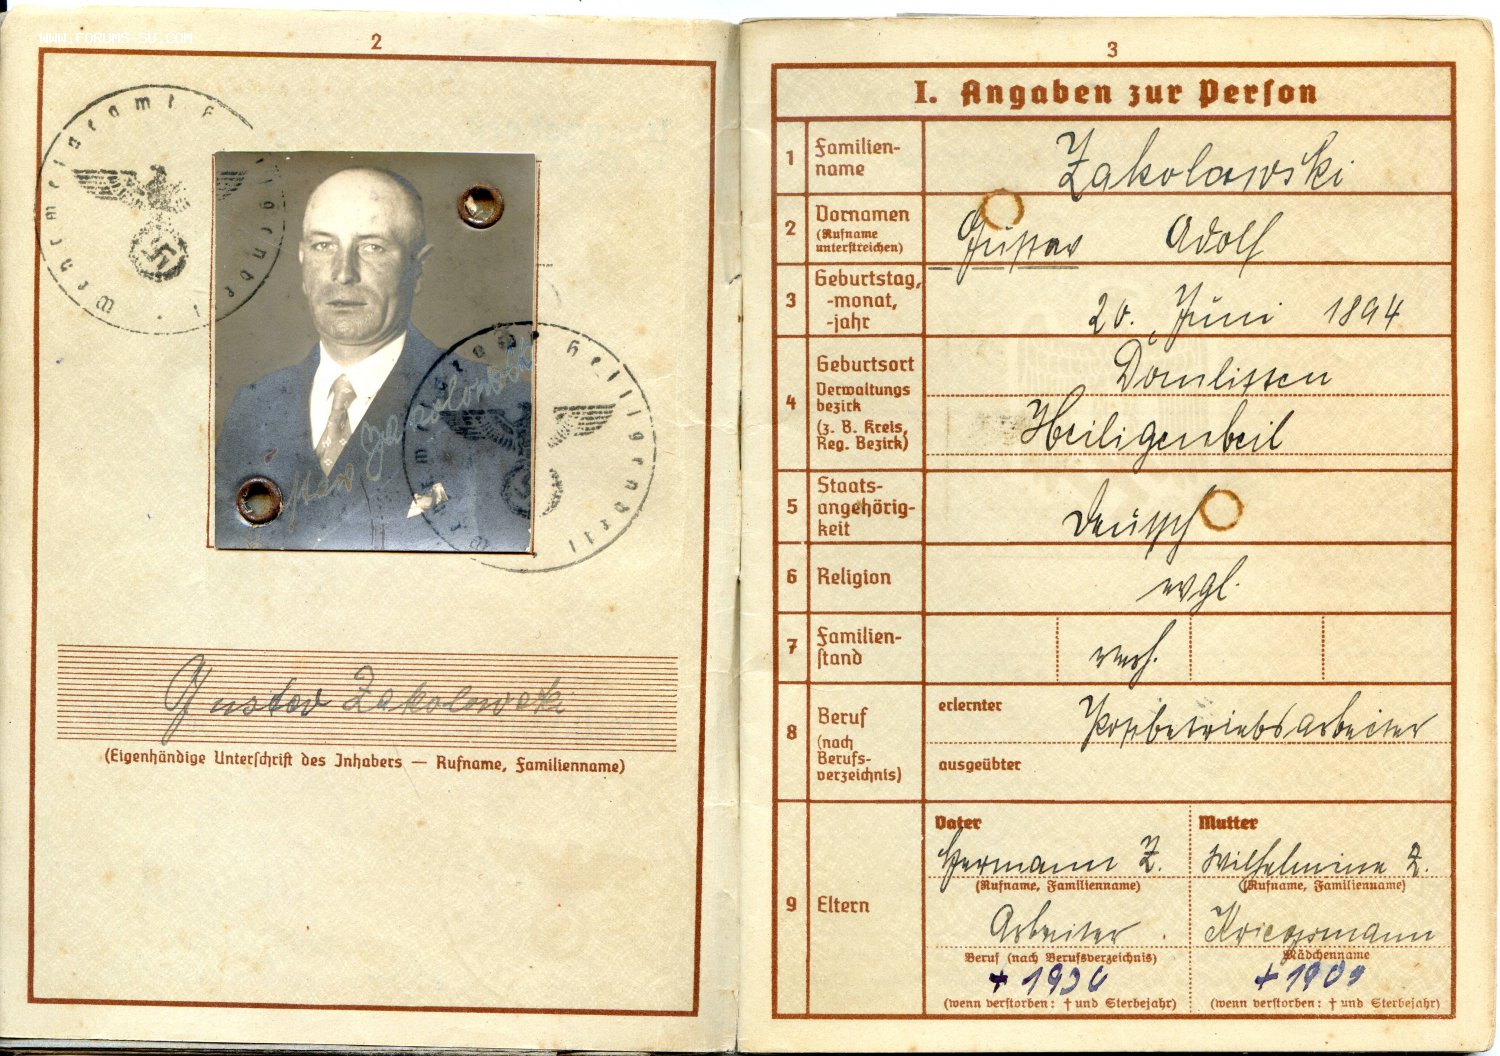 WWW.FORUMS-SU.COM
2
Wehrmeldeamt
Heiligenbeil
Gustav Zakolowski
(Eigenhändige Unterschrift des Inhabers — Rufname, Familienname)
3
I. Angaben zur Person
1 Familien-
name
Zakolowski
2 Vornamen
(Rufname
unterstreichen)
Gustav Adolf
3 Geburtstag,
-monat,
-jahr
20. Juni 1894
4 Geburtsort
Verwaltungs
bezirk
(z. B. Kreis,
Reg. Bezirk)
Heiligenbeil
5 Staats-
angehörig-
keit
Deutsch
6 Religion
evgl.
7 Familien-
stand
verh.
8 Beruf
(nach
Berufs-
verzeichnis)
erlernter
Postbetriebsarbeiter
ausgeübter
9 Eltern
Vater
Hermann Z.
(Rufname, Familienname)
Arbeiter
Beruf (nach Berufsverzeichnis)
(wenn verstorben: † und Sterbejahr)
Mutter
Wilhelmine Z.
(Rufname, Familienname)
Mädchenname
(wenn verstorben: † und Sterbejahr)